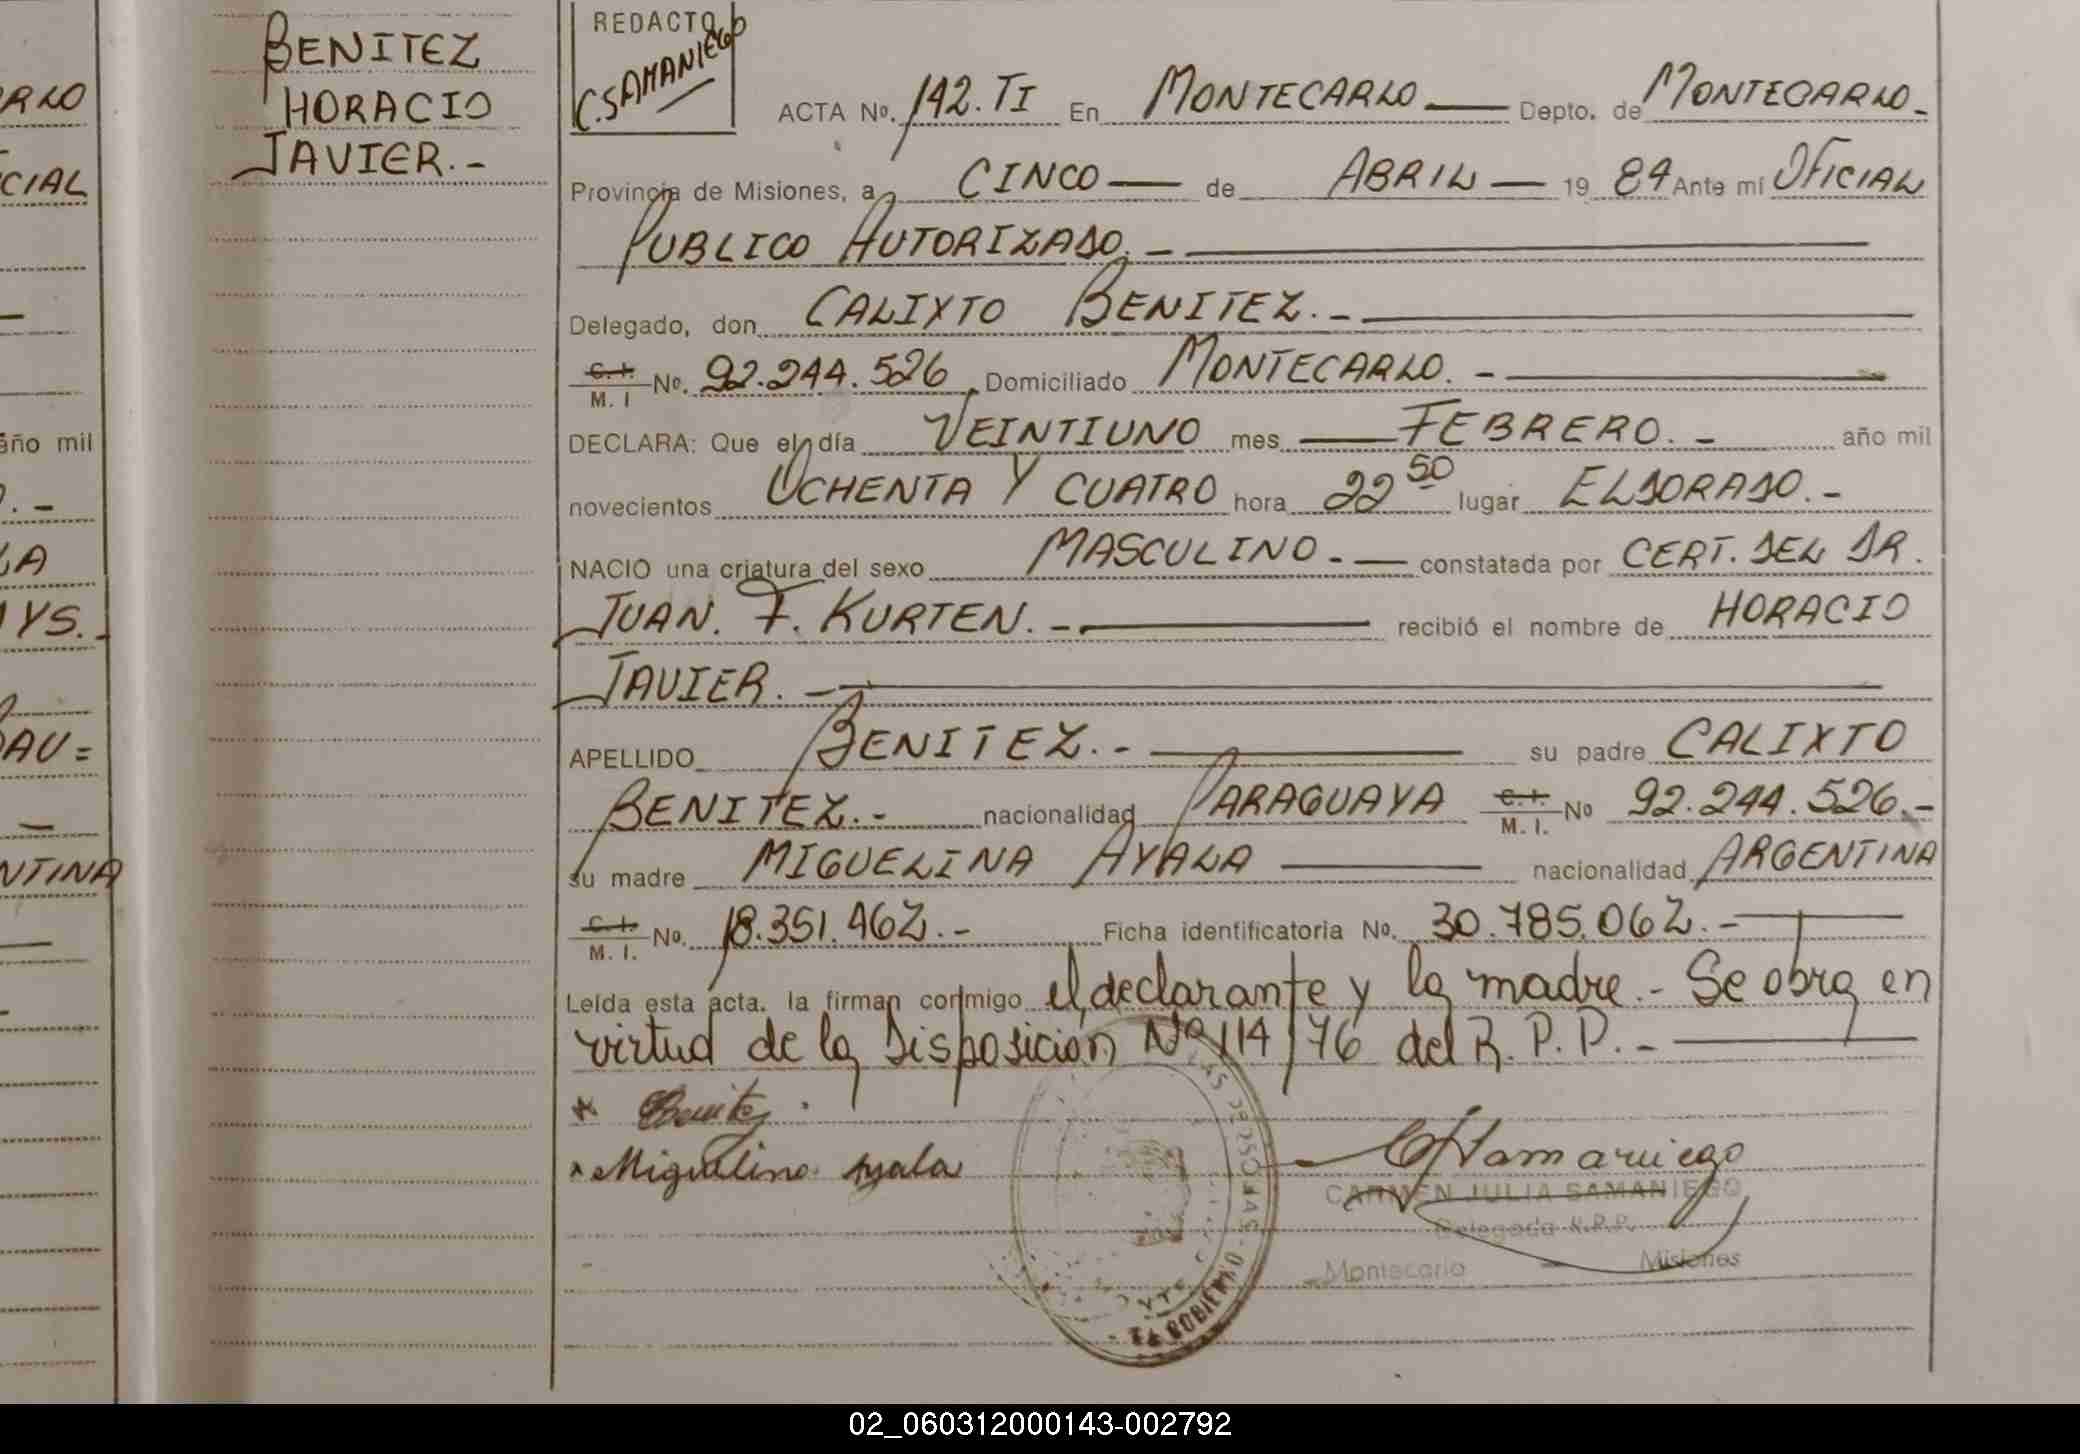 BENITEZ
HORACIO
JAVIER.-
REDACTO
C.SAMANIEGO
ACTA No. 142.TI En MONTECARLO Depto. de MONTECARLO-
Provincia de Misiones, a CINCO de ABRIL 19 84 Ante mí OFICIAL
PUBLICO AUTORIZADO.-
Delegado, don CALIXTO BENITEZ.-
C. I.
M. I No. 92.244.526 Domiciliado MONTECARLO.-
DECLARA: Que el día VEINTIUNO mes FEBRERO.- año mil
novecientos OCHENTA Y CUATRO hora 22 50 lugar ELDORADO.-
NACIO una criatura del sexo MASCULINO.- constatada por CERT. DEL DR.
JUAN. F. KURTEN.- recibió el nombre de HORACIO
JAVIER.-
APELLIDO BENITEZ.- su padre CALIXTO
BENITEZ.- nacionalidad PARAGUAYA C. I. M. I. No 92.244.526.-
su madre MIGUELINA AYALA nacionalidad ARGENTINA
C. I.
M. I. No. 18.351.462.- Ficha identificatoria No. 30.785.062.-
Leída esta acta. la firman conmigo el declarante y la madre.- Se obra en
virtud de la Disposición Nº 114/76 del R.P.P.-
Benitez
Miguelina Ayala
CJSamaniego
CARMEN JULIA SAMANIEGO
Delegada R.P.P.
Montecarlo - Misiones
ARLO
CIAL
año mil
LA
AYS.-
DAU=
NTINA
02_060312000143-002792